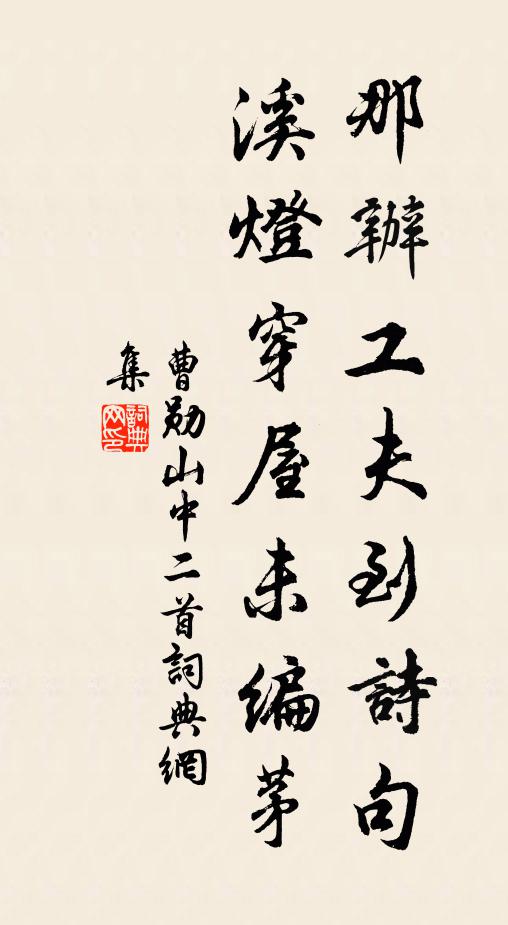 那辦工夫到詩句
溪燈穿屋未編茅
曹勛山中二首詞典網
集
詞典
网印